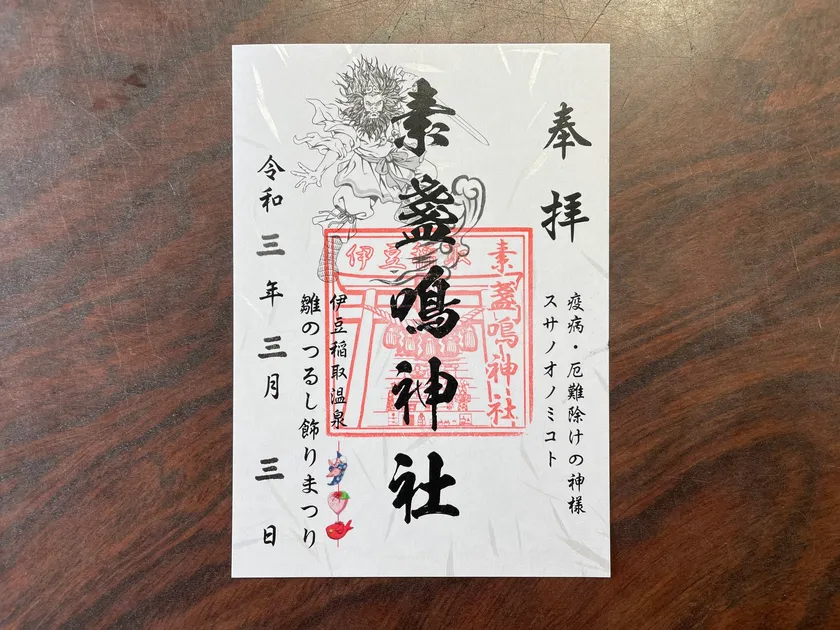 奉拝
疫病・厄難除けの神様
スサノオノミコト
素盞鳴神社
素盞鳴神社
伊豆稲取
伊豆稲取温泉
雛のつるし飾りまつり
令和三年三月三日